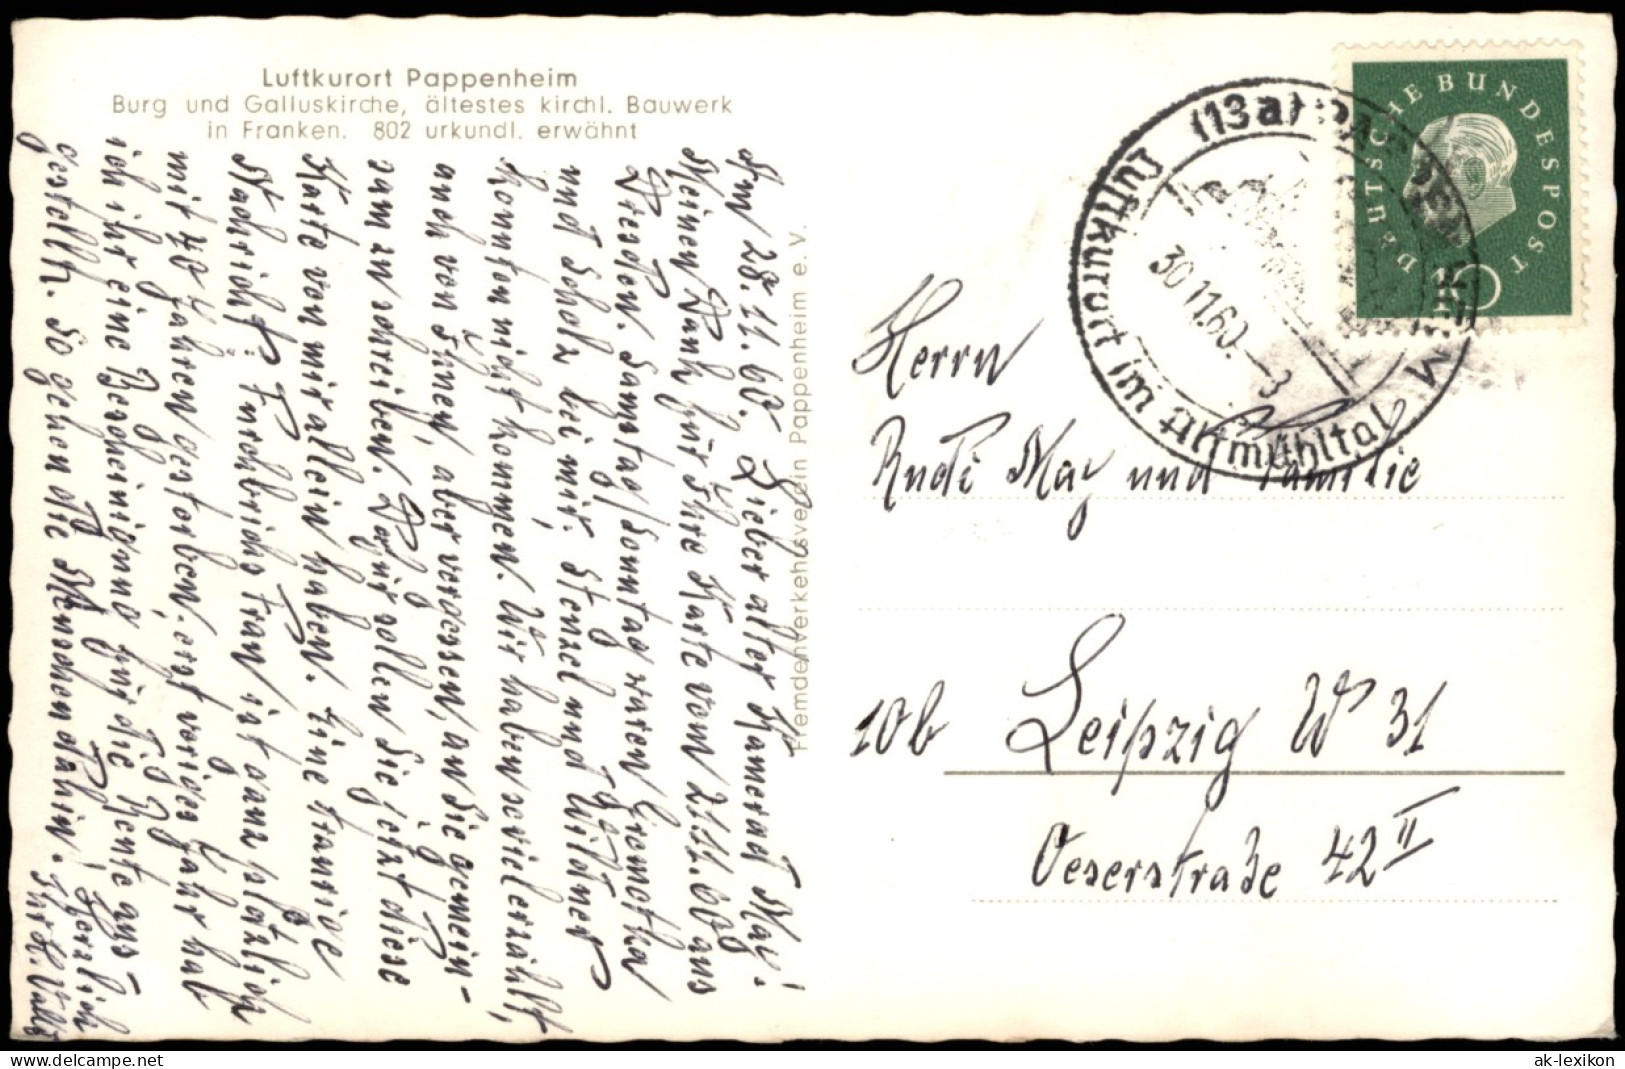 Luftkurort Pappenheim
Burg und Galluskirche, ältestes kirchl. Bauwerk
in Franken. 802 urkundl. erwähnt
Am 28.11.60. Lieber alter Kamerad May!
Meinen Dank für Ihre Karte vom 21.11.60 aus
Dresden. Samstag/Sonntag waren
und Scholz bei mir. Stenzel und Wildner
konnten nicht kommen. Wir haben viel erzählt,
auch von Ihnen, aber vergessen, an Sie gemein-
sam zu schreiben. Dafür sollen Sie jetzt diese
Karte von mir allein haben. Eine traurige
Nachricht: Frau ist ganz plötzlich
mit 40 Jahren gestorben, erst voriges Jahr hab
ich ihr eine Bescheinigung für die Rente aus-
gestellt. So gehen die Menschen dahin! Herzlich
Ihr
Fremdenverkehrsverein Pappenheim e.V.
(13a) PAPPENHEIM
Luftkurort im Altmühltal
30.11.60.-3
DEUTSCHE BUNDESPOST
10
Herrn
Rudi May und Familie
10b Leipzig W 31
Oeserstraße 42 II
ak-ansichtskarten.de
ak-lexikon